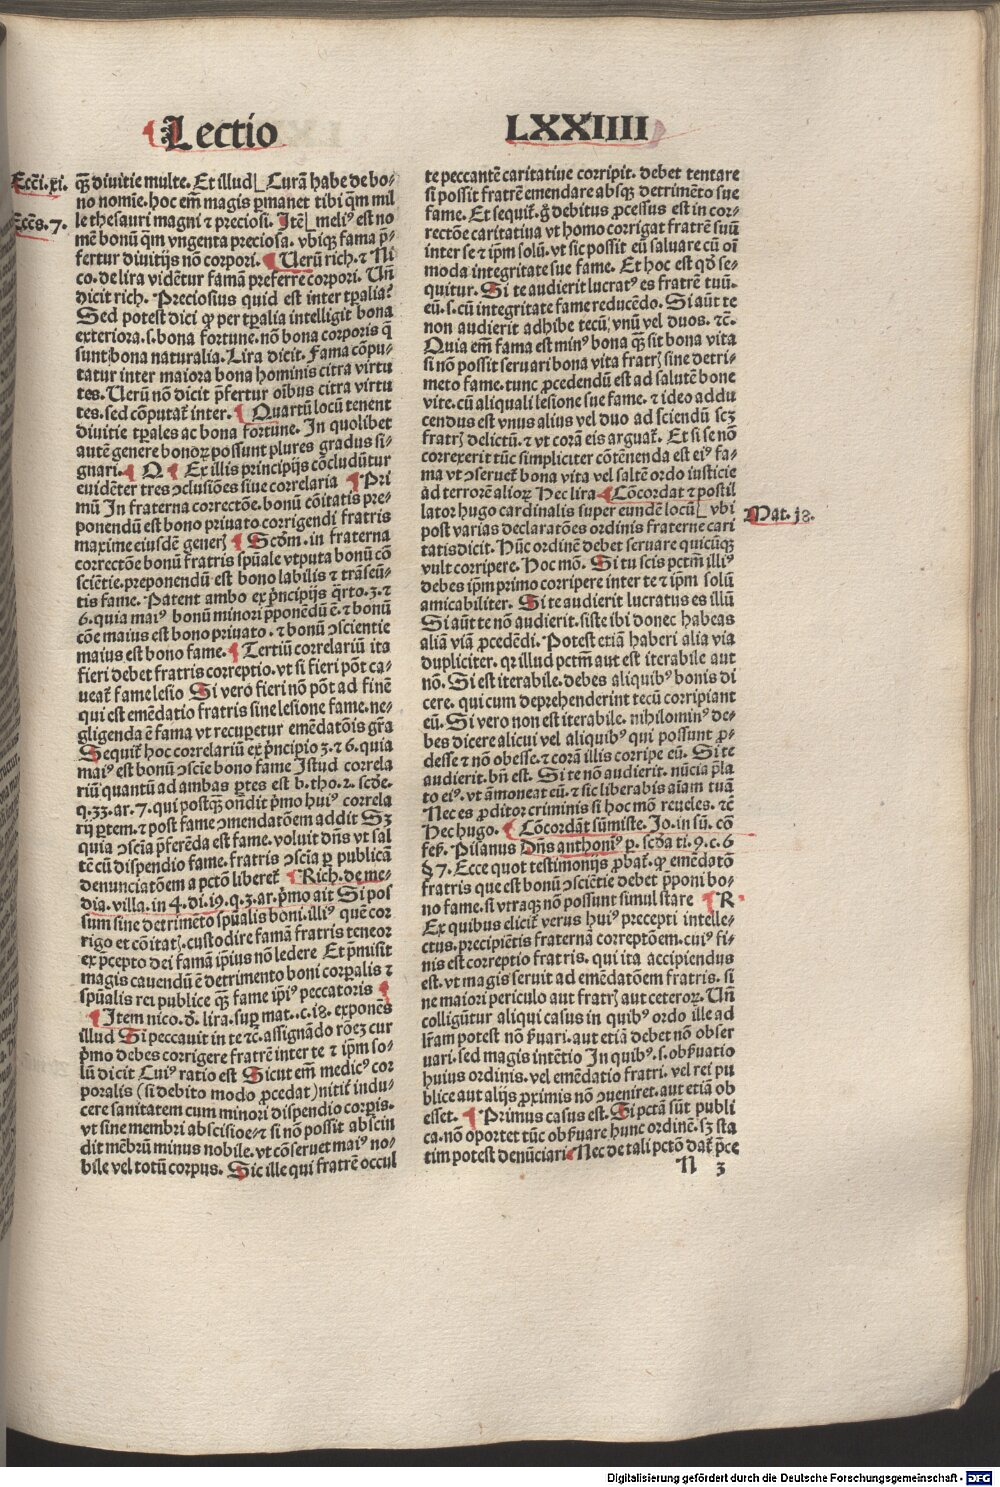 Lectio
LXXIIII
Eccī. xi.
Eccēs. 7.
q̄ȝ diuitie multe. Et illud Curā habe de bo⸗
no nomīe. hoc em̄ magis ꝑmanet tibi q̄m mil
le thesauri magni ⁊ preciosi. Itē meliꝰ est no
mē bonū q̄m vngenta preciosa. vbiqꝫ fama p̄⸗
fertur diuitijs nō corpori. ¶ Uerū rich. ⁊ Ni
co. de lira vidētur famā preferre corpori. Un̄
dicit rich. Preciosius quid est inter tꝑalia?
Sed potest dici ꝙ per tꝑalia intelligit bona
exteriora. s. bona fortune. nō bona corporis q̄
sunt bona naturalia. Lira dicit. Fama cōpu⸗
tatur inter maiora bona hominis citra virtu
tes. Uerū nō dicit p̄fertur oībus citra virtu
tes. sed cōputat̄ inter. ¶ Quartū locū tenent
diuitie tꝑales ac bona fortune. In quolibet
autē genere bonoꝝ possunt plures gradus si⸗
gnari. ¶ Q ¶ Ex illis principijs cōcludūtur
euidēter tres ↄclusiōes siue correlaria ¶ Pri
mū In fraterna correctōe. bonū cōitatis pre⸗
ponendū est bono priuato corrigendi fratris
maxime eiusdē generꝭ ¶ Scd̄m. in fraterna
correctōe bonū fratris spūale vtputa bonū cō
sciētie. preponendū est bono labilis ⁊ trāseū⸗
tis fame. Patent ambo ex p̄ncipijs q̄rto. 3. ⁊
6. quia maiꝰ bonū minori p̄ponēdū ē. ⁊ bonū
cōe maius est bono priuato. ⁊ bonū ↄscientie
maius est bono fame. ¶ Tertiū correlariū ita
fieri debet fratris correptio. vt si fieri pōt ca⸗
ueat̄ fame lesio Si vero fieri nō pōt ad finē
qui est emēdatio fratris sine lesione fame. ne⸗
gligenda ē fama vt recuꝑetur emēdatōis gr̄a
Sequit̄ hoc correlariū ex p̄ncipio 3. ⁊ 6. quia
maiꝰ est bonū ↄscīe bono fame Istud correla
riū quantū ad ambas ꝑtes est b. tho. 2. scd̄e.
q. 33. ar. 7. qui postqꝫ on̄dit p̄mo huiꝰ correla
rij ꝑtem. ⁊ post fame ↄmendatōem addit Sꝫ
quia ↄscīa p̄ferēda est fame. voluit dn̄s vt sal
tē cū dispendio fame. fratris ↄscīa ꝑ publicā
denunciatōem a pctō liberet̄ ¶ Rich. de me⸗
dia. villa. in 4. di. 19. q. 3. ar. p̄mo ait Si pos
sum sine detrimēto spūalis boni. illiꝰ quē cor
rigo et cōitatꝭ. custodire famā fratris teneor
ex p̄cepto dei famā ip̄ius nō ledere Et p̄misit
magis cauendū ē detrimento boni corꝑalis ⁊
spūalis rei publice q̄ȝ fame ip̄iꝰ peccatoris ¶
¶ Item nico. d̄. lira. suꝑ mat.. c. 18. exponēs
illud Si peccauit in te ⁊c. assignādo rōeꝫ cur
p̄mo debes corrigere fratrē inter te ⁊ ip̄m so⸗
lū dicit Cuiꝰ ratio est Sicut em̄ medicꝰ cor
poralis (si debito modo ꝓcedat) nitit̄ indu⸗
cere sanitatem cum minori dispendio corꝑis.
vt sine membri abscisioe⸗⁊ si nō possit abscin
dit mēbrū minus nobile. vt cōseruet maiꝰ no⸗
bile vel totū corpus. Sic ille qui fratrē occul
te peccantē caritatiue corripit. debet tentare
si possit fratrē emendare absqꝫ detrimēto sue
fame. Et sequit̄. g̊ debitus ꝓcessus est in cor⸗
rectōe caritatiua vt homo corrigat fratrē suū
inter se ⁊ ip̄m solū. vt sic possit eū saluare cū oī
moda integritate sue fame. Et hoc est qd̄ se⸗
quitur. Si te audierit lucratꝰ es fratrē tuū.
eū. s. cū integritate fame reducēdo. Si aūt te
non audierit adhibe tecū vnū vel duos. ⁊c̄.
Quia em̄ fama est minꝰ bona q̄ȝ sit bona vita
si nō possit seruari bona vita fratrꝭ sine detri⸗
meto fame. tunc ꝓcedendū est ad salutē bone
vite. cū aliquali lesione sue fame. ⁊ ideo addu
cendus est vnus alius vel duo ad sciendū scꝫ
fratrꝭ delictū. ⁊ vt corā eis arguat̄. Et si se nō
correxerit tūc simpliciter cōtēnenda est eiꝰ fa⸗
ma vt ↄseruet̄ bona vita vel saltē ordo iusticie
ad terrorē alioꝝ Hec lira ¶ Cōcordat ⁊ postil
lator hugo cardinalis super eundē locū vbi
Mat. 18.
post varias declaratōes ordinis fraterne cari
tatis dicit. Hūc ordinē debet seruare quicūqꝫ
vult corripere. Hoc mō. Si tu scis pctm̄ illiꝰ
debes ip̄m primo corripere inter te ⁊ ip̄m solū
amicabiliter. Si te audierit lucratus es illū
Si aūt te nō audierit. siste ibi donec habeas
aliā viā ꝓcedēdi. Potest etiā haberi alia via
dupliciter. qꝛ illud pctm̄ aut est iterabile aut
nō. Si est iterabile. debes aliquibꝰ bonis di
cere. qui cum deprehenderint tecū corripiant
eū. Si vero non est iterabile. nihilominꝰ de⸗
bes dicere alicui vel aliquibꝰ qui possunt ꝓ⸗
desse ⁊ nō obesse. ⁊ corā illis corripe eū. Si te
audierit. bn̄ est. Si te nō audierit. nūcia p̄la
to eiꝰ. vt āmoneat eū. ⁊ sic liberabis aīam tuā
Nec es ꝓditor criminis si hoc mō reueles. ⁊c̄
Hec hugo. ¶ Cōcordāt sūmiste. Jo. in sū. cō
fes̄. Pisanus Dn̄s anthoniꝰ p. scd̄a ti. 9. c. 6
§ 7. Ecce quot testimonijs ꝓbat̄. ꝙ emēdatō
fratris que est bonū ↄsciētie debet p̄poni bo⸗
no fame. si vtraqꝫ nō possunt simul stare ¶ R
Ex quibus elicit̄ verus huiꝰ precepti intelle⸗
ctus. precipiētis fraternā correptōem. cuiꝰ fi⸗
nis est correptio fratris. qui ita accipiendus
est. vt magis seruit ad emēdatōem fratris. si
ne maiori periculo aut fratrꝭ aut ceteroꝝ. Un̄
colligūtur aliqui casus in quibꝰ ordo ille ad
lr̄am potest nō ẜuari. aut etiā debet nō obser
uari. sed magis intētio In quibꝰ. s. obẜuatio
huius ordinis. vel emēdatio fratri. vel rei pu
blice aut alijs ꝓximis nō ↄueniret. aut etiā ob
esset. ¶ Primus casus est. Si pctā sūt publi
ca. nō oportet tūc obẜuare hunc ordinē. sꝫ sta
tim potest denūciari ¶ Nec de tali pctō dat̄ p̄ce
N 3
Digitalisierung gefördert durch die Deutsche Forschungsgemeinschaft - DFG